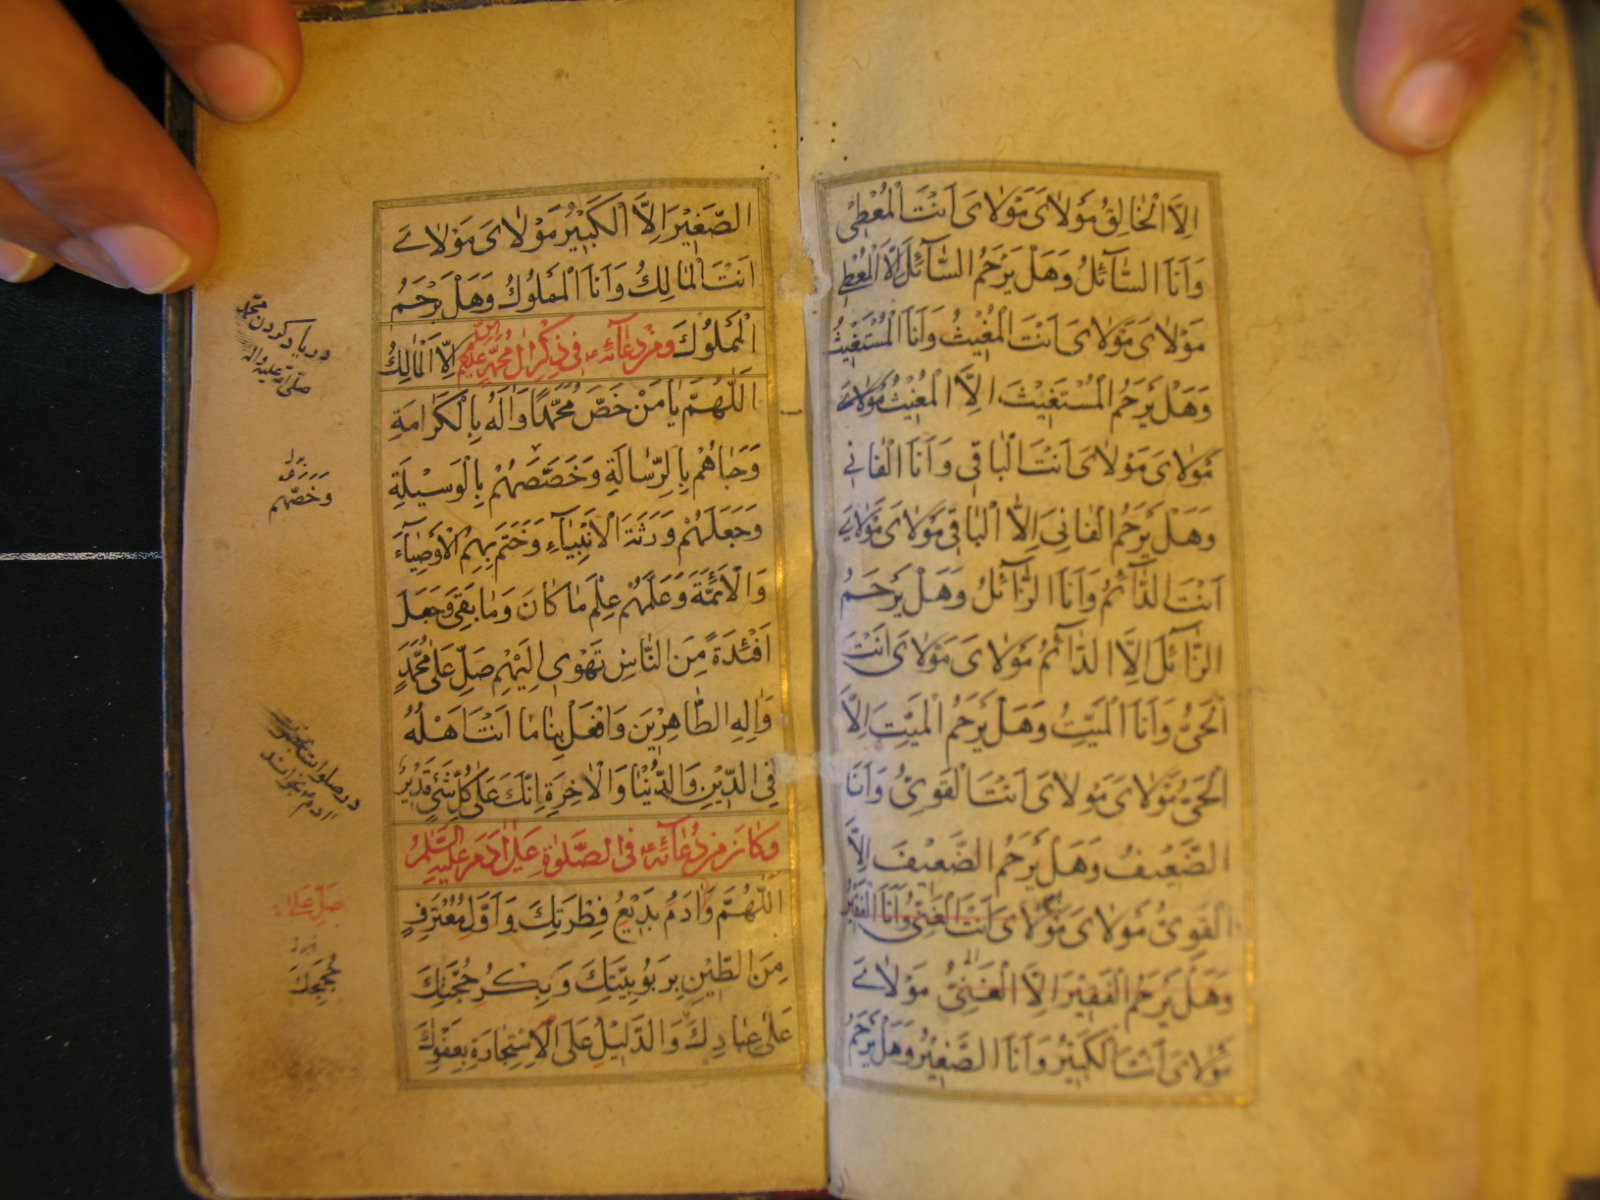 اِلاَّ الْخالِقُ مَوْلاىَ مَوْلاىَ اَنْتَ الْمُعْطى
وَاَنَا السّآئِلُ وَهَلْ يَرْحَمُ السّآئِلَ اِلاَّ الْمُعْطى
مَوْلاىَ مَوْلاىَ اَنْتَ الْمُغيثُ وَاَنَا الْمُسْتَغيثُ
وَهَلْ يَرْحَمُ الْمُسْتَغيثَ اِلاَّ الْمُغيثُ مَوْلاىَ
مَوْلاىَ مَوْلاىَ اَنْتَ الْباقى وَاَنَا الْفانى
وَهَلْ يَرْحَمُ الْفانِىَ اِلاَّ الْباقى مَوْلاىَ مَوْلاىَ
اَنْتَ الدّآئِمُ وَاَنَا الزّآئِلُ وَهَلْ يَرْحَمُ
الزّآئِلَ اِلاَّ الدّآئِمُ مَوْلاىَ مَوْلاىَ اَنْتَ
الْحَىُّ وَاَنَا الْمَيِّتُ وَهَلْ يَرْحَمُ الْمَيِّتَ اِلاَّ
الْحَىُّ مَوْلاىَ مَوْلاىَ اَنْتَ الْقَوِىُّ وَاَنَا
الضَّعيفُ وَهَلْ يَرْحَمُ الضَّعيفَ اِلاَّ
الْقَوِىُّ مَوْلاىَ مَوْلاىَ اَنْتَ الْغَنِىُّ وَاَنَا الْفَقيرُ
وَهَلْ يَرْحَمُ الْفَقيرَ اِلاَّ الْغَنِىُّ مَوْلاىَ
مَوْلاىَ اَنْتَ الْكَبيرُ وَاَنَا الصَّغيرُ وَهَلْ يَرْحَمُ
الصَّغيرَ اِلاَّ الْكَبيرُ مَوْلاىَ مَوْلاىَ
اَنْتَ الْمالِكُ وَاَنَا الْمَمْلُوكُ وَهَلْ يَرْحَمُ
الْمَمْلُوكَ اِلاَّ الْمالِكُ
ومن دعائه ع في ذكر ال محمد عليهم السلام
اَللّهُمَّ يا مَنْ خَصَّ مُحَمَّدًا وَالَهُ بِالْكَرامَةِ
وَحَباهُمْ بِالرِّسالَةِ وَخَصَّصَهُمْ بِالْوَسيلَةِ
وَجَعَلَهُمْ وَرَثَةَ الْاَنْبِيآءِ وَخَتَمَ بِهِمُ الْاَوْصِيآءَ
وَالْاَئِمَّةَ وَعَلَّمَهُمْ عِلْمَ ما كانَ وَما بَقِىَ وَجَعَلَ
اَفْئِدَةً مِنَ النّاسِ تَهْوى اِلَيْهِمْ صَلِّ عَلى مُحَمَّدٍ
وَالِهِ الطّاهِرينَ وَافْعَلْ بِنا ما اَنْتَ اَهْلُهُ
فِى الدّينِ وَالدُّنْيا وَالْاخِرَةِ اِنَّكَ عَلى كُلِّ شَىْءٍ قَديرٌ
وكان من دعائه ع في الصلوة على ادم عليه السلام
اَللّهُمَّ وَادَمُ بَديعُ فِطْرَتِكَ وَاَوَّلُ مُعْتَرِفٍ
مِنَ الطّينِ بِرَبُوبِيَّتِكَ وَبِكْرُ حُجَّتِكَ
عَلى عِبادِكَ وَالدَّليلُ عَلَى الْاِسْتِجارَةِ بِعَفْوِكَ
در ياد كردن محمد
صلى الله عليه واله
وَخَصَّهُم
در صلوات
صل على
حُجَجِكَ